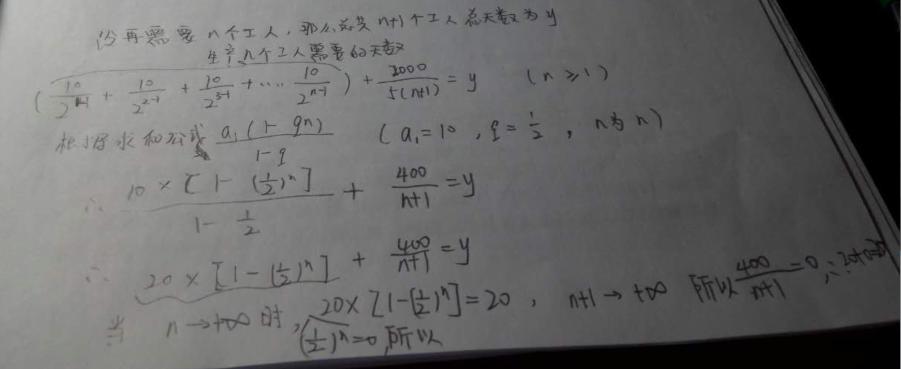 设再需要n个工人，那么总共n+1个工人总天数为y
生产n个工人需要的天数
(10/2^(1-1) + 10/2^(2-1) + 10/2^(3-1) + .... 10/2^(n-1)) + 2000/5(n+1) = y (n≥1)
根据求和公式 a₁(1-qn)/1-q (a₁=10, q=1/2, n为n)
∴ 10×[1-(1/2)^n]/1-1/2 + 400/n+1 = y
∴ 20×[1-(1/2)^n] + 400/n+1 = y
当 n→+∞时, 20×[1-(1/2)^n]=20, n+1→+∞ 所以 400/n+1=0, ∴20+0=20
(1/2)^n=0,所以